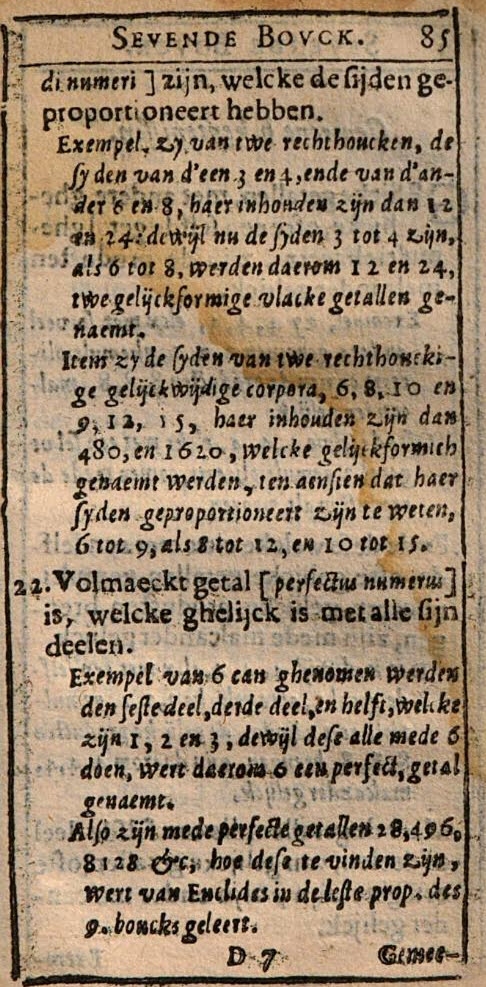 SEVENDE BOVCK. 85
di numeri ] zijn, welcke de sijden ge-
proportioneert hebben.
Exempel, zy van twe rechthoucken, de
syden van d'een 3 en 4, ende van d'an-
der 6 en 8, haer inhouden zijn dan 12
en 24: dewijl nu de syden 3 tot 4 zijn,
als 6 tot 8, werden daerom 12 en 24,
twe gelijckformige vlacke getallen ge-
naemt.
Item zy de syden van twe rechthoucki-
ge gelijckwijdige corpora, 6, 8, 10 en
9, 12, 15, haer inhouden zijn dan
480, en 1620, welcke gelijckformich
genaemt werden, ten aensien dat haer
syden geproportioneert zijn te weten,
6 tot 9, als 8 tot 12, en 10 tot 15.
22. Volmaeckt getal [ perfectus numerus ]
is, welcke ghelijck is met alle sijn
deelen.
Exempel van 6 can ghenomen werden
den seste deel, derde deel, en helft, welcke
zijn 1, 2 en 3, dewijl dese alle mede 6
doen, wert daerom 6 een perfect, getal
genaemt.
Also zijn mede perfecte getallen 28, 496,
8128 &c, hoe dese te vinden zijn,
wert van Euclides in de leste prop. des
9. boucks geleert.
D 7 Gemee-